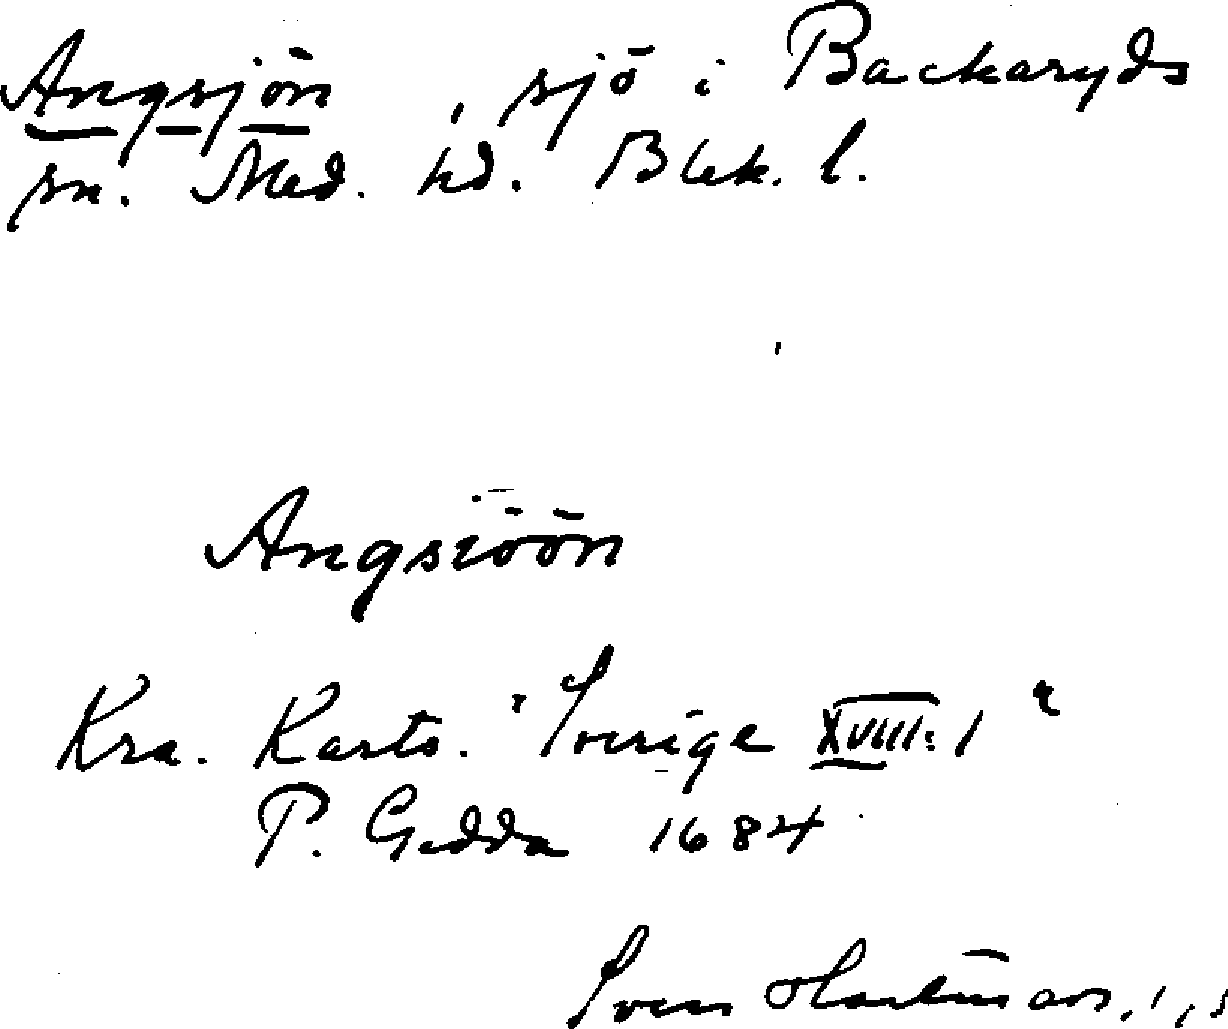 Angsjön, sjö i Backaryds
sn. Med. hd. Blek. l.
Angsiöön
Kra. Karto. "Sverige XVIIII: 1"
P. Gedda 1684
Sven